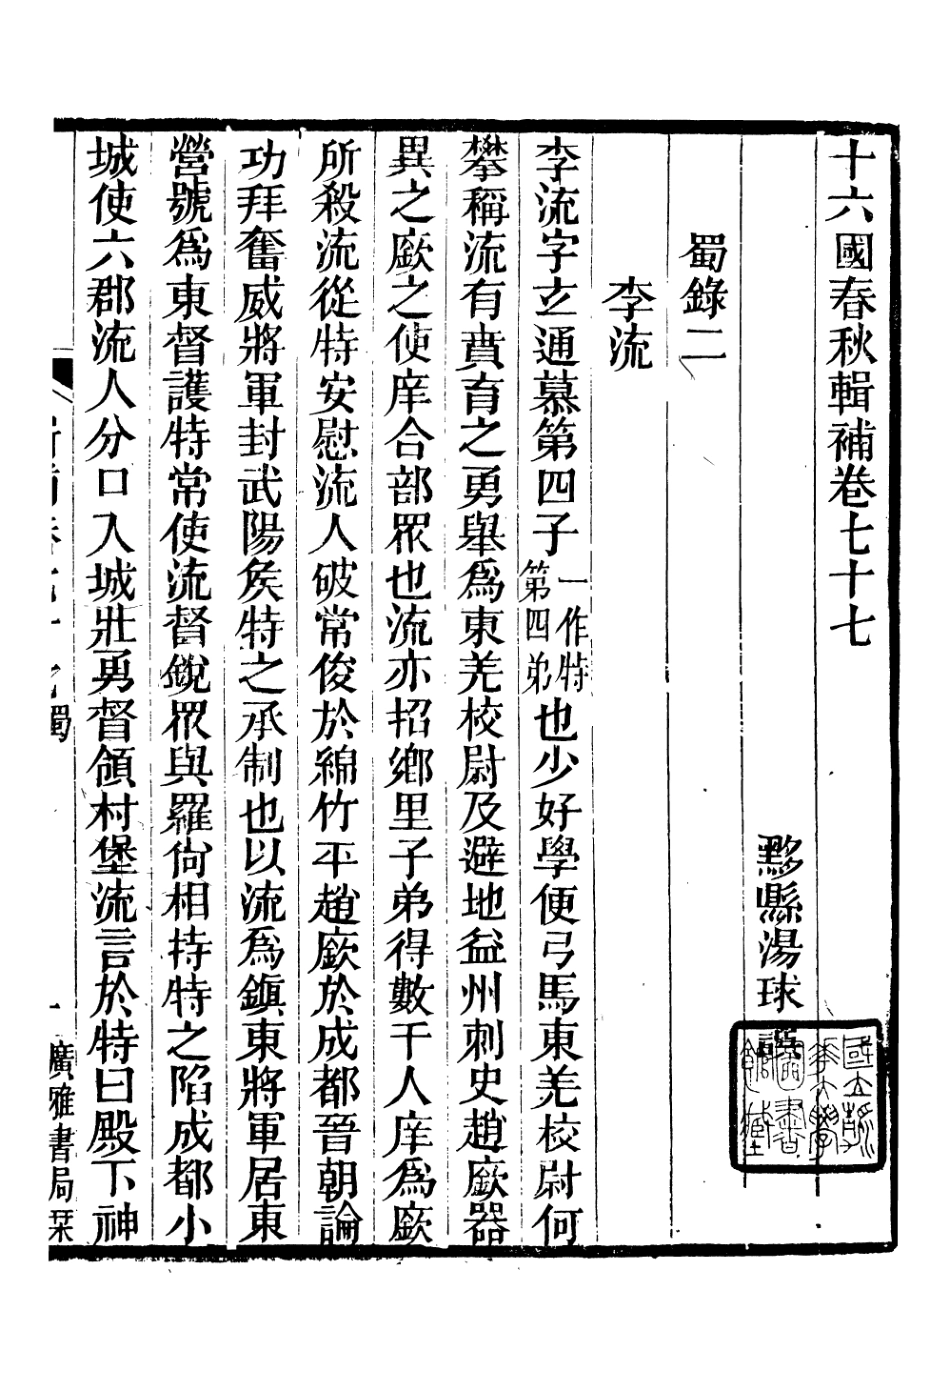 十六國春秋輯補卷七十七
黟縣湯球譔
蜀錄二
李流
李流字玄通慕第四子一作特第四弟也少好學便弓馬東羌校尉何
攀稱流有賁育之勇舉爲東羌校尉及避地益州刺史趙廞器
異之廞之使庠合部眾也流亦招鄉里子弟得數千人庠爲廞
所殺流從特安慰流人破常俊於綿竹平趙廞於成都晉朝論
功拜奮威將軍封武陽矦特之承制也以流爲鎭東將軍居東
營號爲東督護特常使流督銳眾與羅尙相持特之陷成都小
城使六郡流人分口入城壯勇督領村堡流言於特曰殿下神
蜀
一
廣雅書局栞